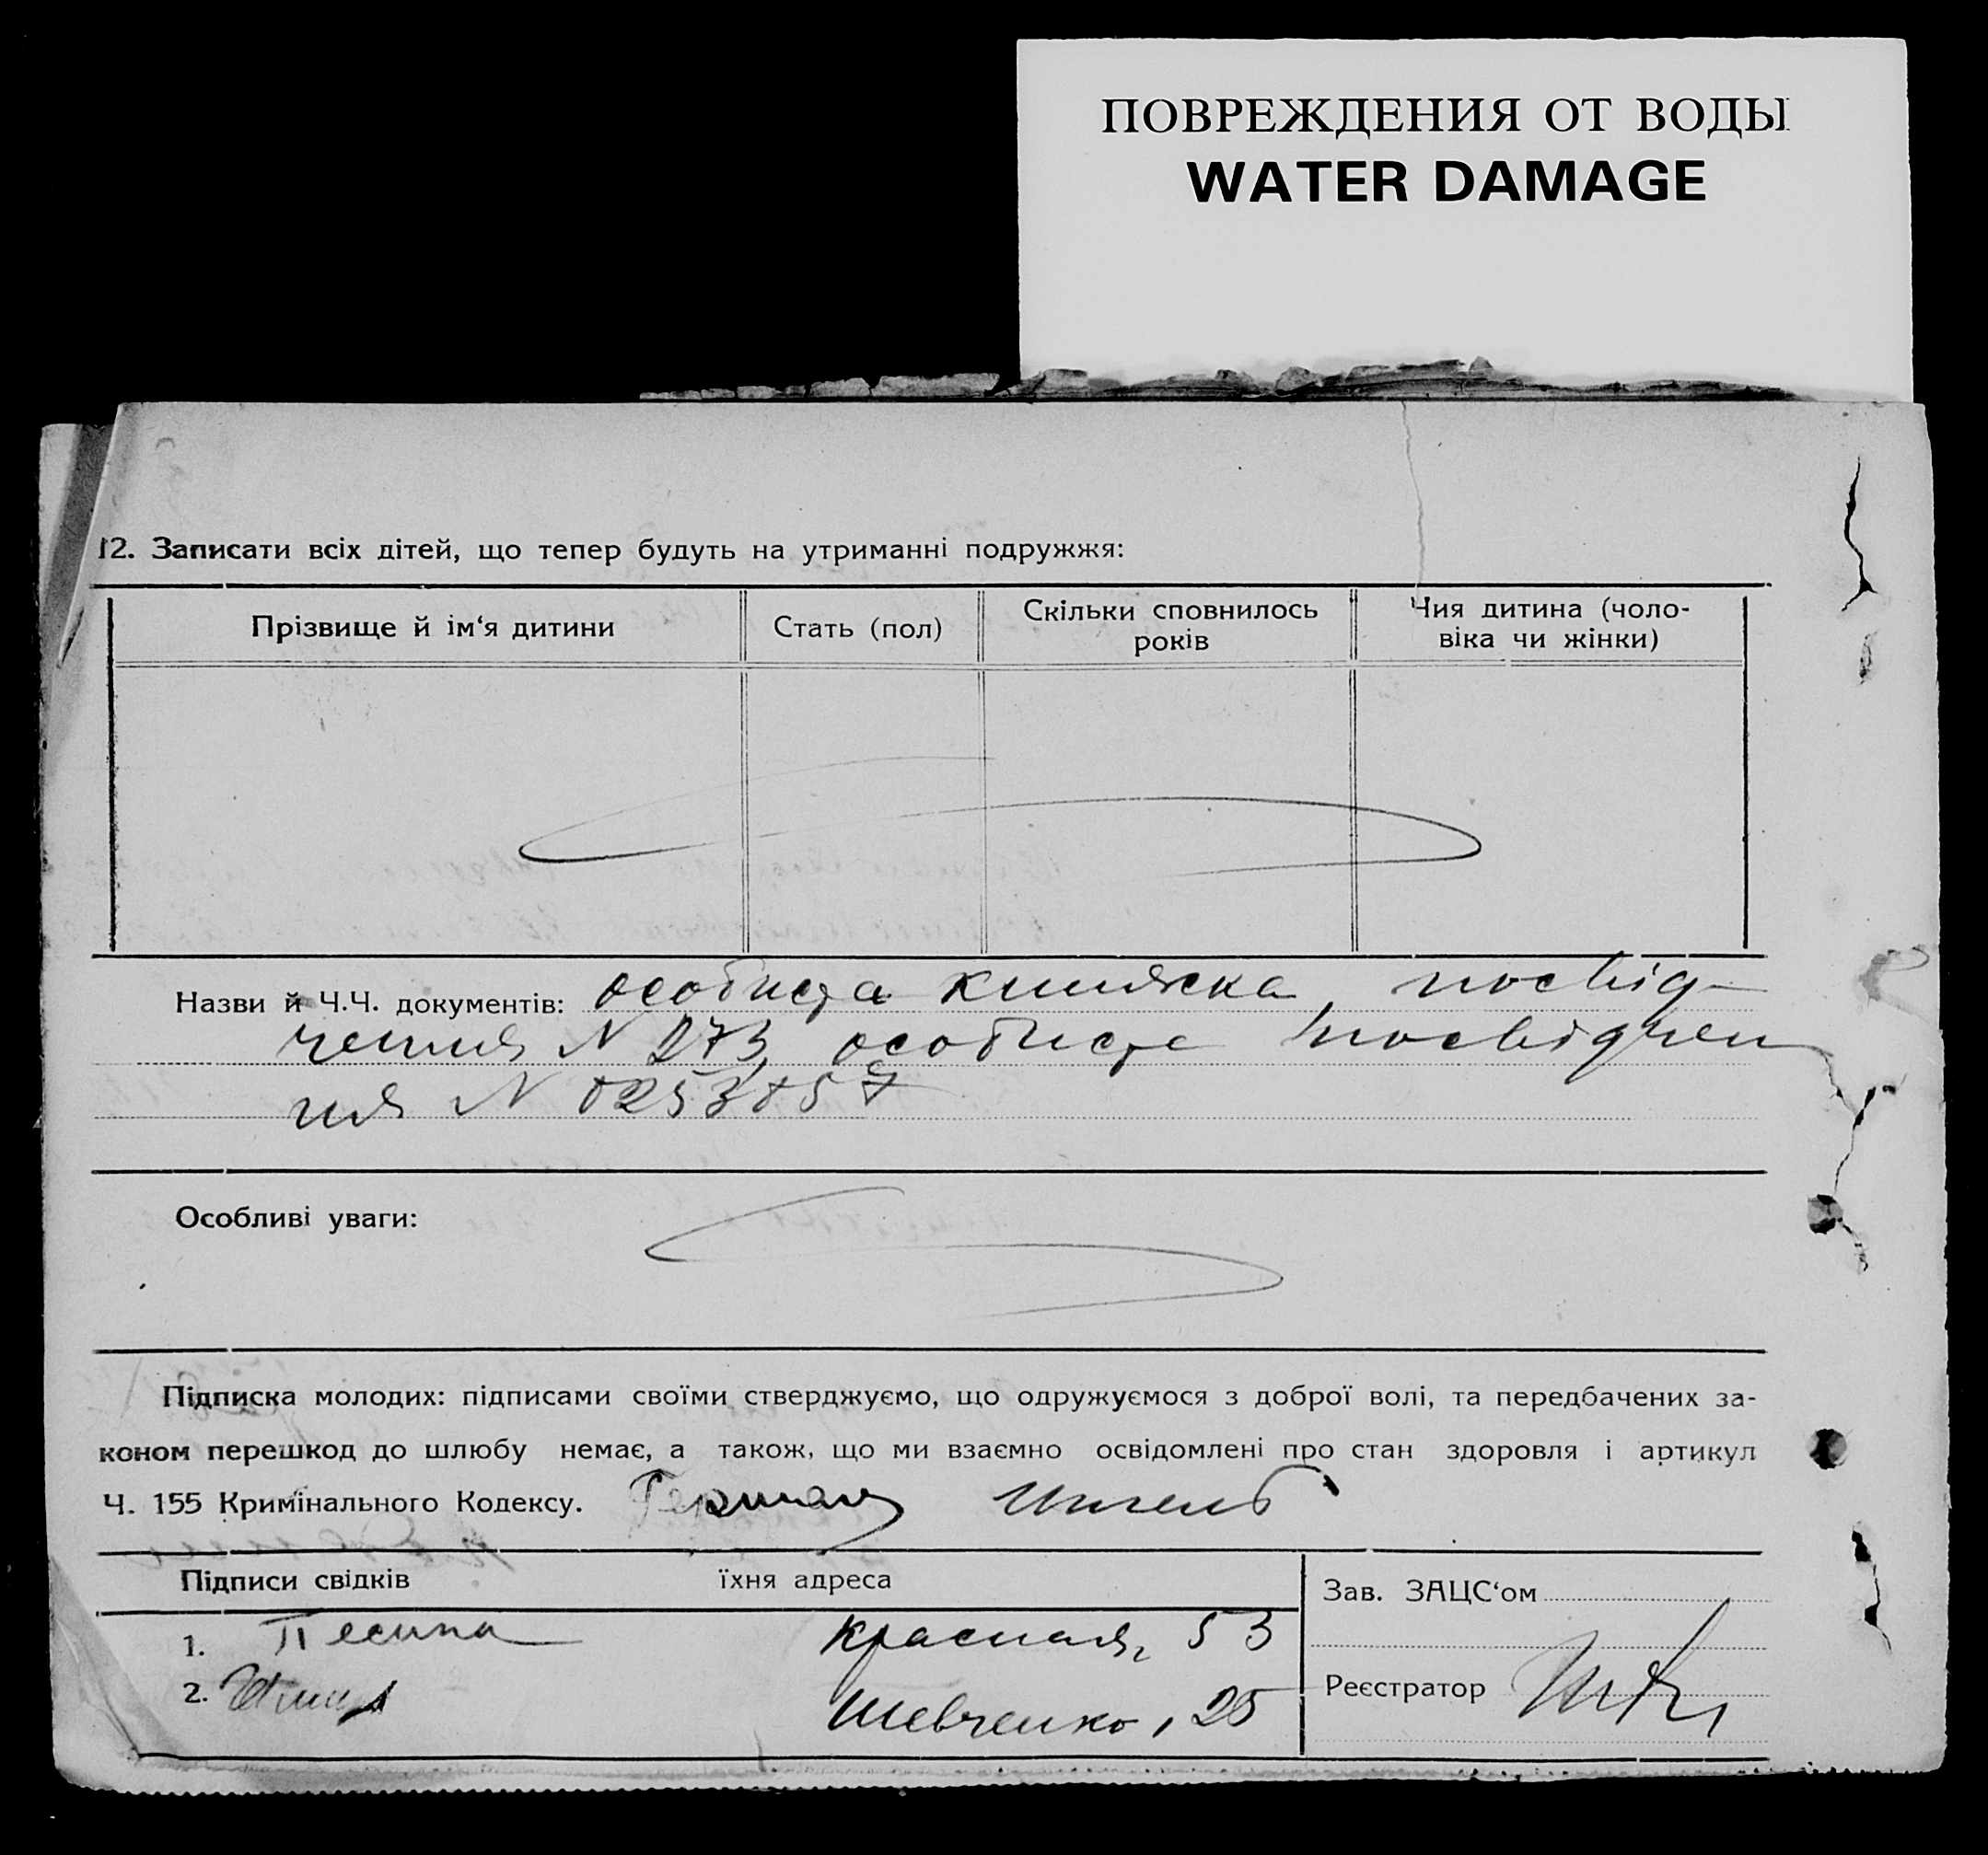 ПОВРЕЖДЕНИЯ ОТ ВОДЫ
WATER DAMAGE
12. Записати всіх дітей, що тепер будуть на утриманні подружжя:
Прізвище й ім‘я дитини
Стать (пол)
Скільки сповнилось
років
Чия дитина (чоло-
віка чи жінки)
Назви й Ч.Ч. документів: особиста книжка, посвід-
чення N 273, особисте посвідчен
ня N
Особливі уваги:
Підписка молодих: підписами своїми стверджуємо, що одружуємося з доброї волі, та передбачених за-
коном перешкод до шлюбу немає, а також, що ми взаємно освідомлені про стан здоровля і артикул
Ч. 155 Кримінального Кодексу. Герман
Підписи свідків їхня адреса
1. Песина Красная, 53
2. Шевченко, 25
Зав. ЗАЦС‘ом
Реєстратор